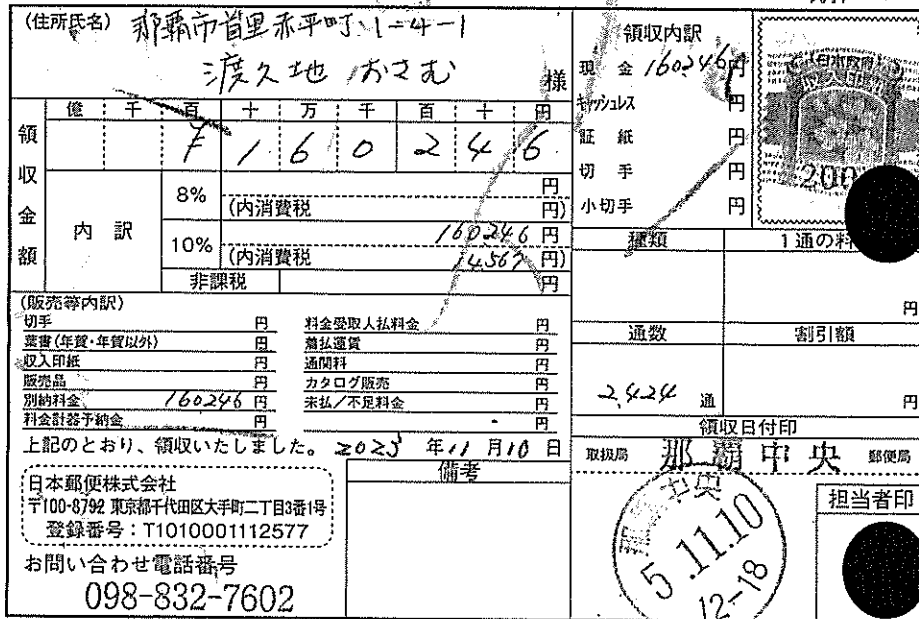 (住所氏名) 那覇市首里赤平町 1-4-1
渡久地 おさむ 様
領収金額
億 千 百 十 万 千 百 十 円
¥ 1 6 0 2 4 6
内訳
8% 円
(内消費税 円)
10% 160246 円
(内消費税 14,567 円)
非課税 円
(販売等内訳)
切手 円
葉書(年賀・年賀以外) 円
収入印紙 円
販売品 円
別納料金 160246 円
料金計器予納金 円
料金受取人払料金 円
着払運賃 円
通関料 円
カタログ販売 円
未払/不足料金 円
円
上記のとおり、領収いたしました。 2023 年 11 月 10 日
日本郵便株式会社
〒100-8792 東京都千代田区大手町二丁目3番1号
登録番号:T1010001112577
お問い合わせ電話番号
098-832-7602
備考
領収内訳
現金 160246 円
キャッシュレス 円
証紙 円
切手 円
小切手 円
日本政府
200
種類 1通の料
円
通数 割引額
2,424 通 円
領収日付印
取扱局 那覇中央 郵便局
那覇中央
5.11.10
12-18
担当者印